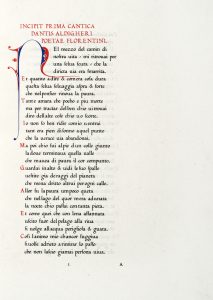 INCIPIT PRIMA CANTICA
DANTIS ALDIGHERI
POETAE FLORENTINI.
Nel mezzo del camin di
nostra uita mi ritrouai per
una selua scura che la
diricta uia era smarrita.
Et quanto a dir cosa dura
questa selua seluaggia aspra & forte
che nel pensier rinoua la paura.
Tanto amara che poco e piu morte
ma per tractar del ben chio ui trouai
diro dellaltre cose chio o scorte.
Io non so ben ridir comio uentrai
tanto era pien di sonno a quel puncto
che la uerace uia abandonai.
Ma poi chio fui al pie dun colle giunto
la doue terminaua quella ualle
che mauea di paura il cor compunto.
Guardai in alto & uidi le sue spalle
uestite gia de raggi del pianeta
che mena dricto altrui per ogni calle.
Allor fu la paura un poco queta
che nel lago del quor mera durata
la nocte chio passai con tanta pieta.
Et come quei che con lena affannata
uscito fuor del pelago alla riua
si uolge allacqua perigliosa & guata.
Cosi lanimo mio chancor fuggiua
si uolse adietro a rimirar lo passo
che non lascio giamai persona uiua.
1
A